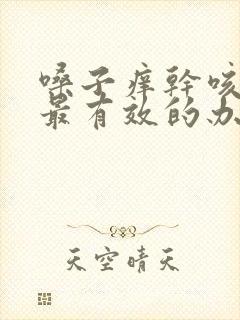 嗓子痒幹咳
最有效的办
天空晴天